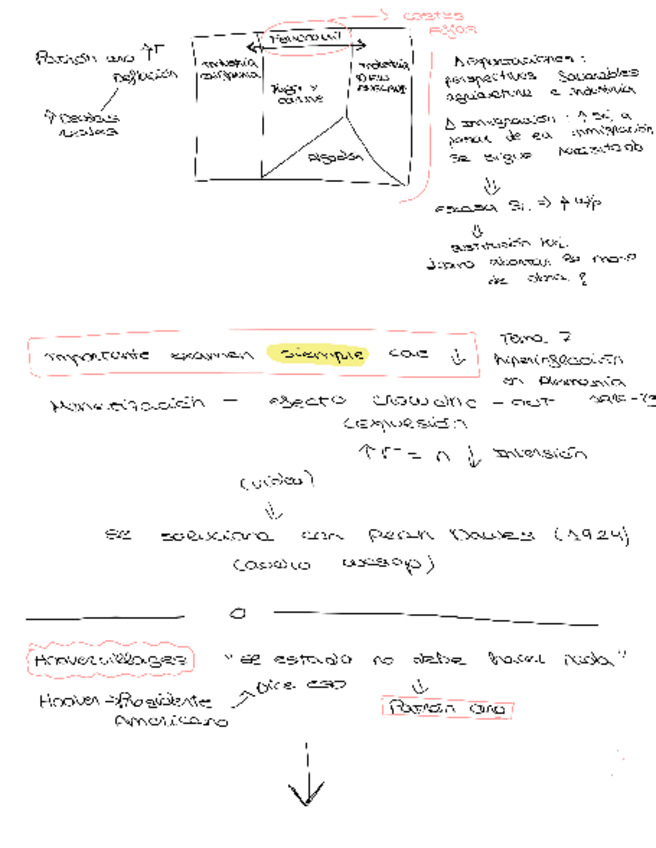 costes
fijos
Ferrocarril
Patrón oro ↑r
Deflación
↑ Deudas
reales
Industria
europea
Trigo y
carne
Industria
Algodón
Δ Exportaciones:
perspectivas favorables
agricultura e industria
Δ Inmigración: ↑ Sl, a
pesar de la inmigración
se sigue necesitando
⇓
escasa SL ⇒ ↑ w/p
⇓
sustitución
¿como ahorrar en mano
de obra?
Importante examen siempre cae ↓
Tema 7
hiperinflación
en Alemania
Monetización - efecto crowding - out
(expulsión
↑r = n ↓ Inversión
(video)
⇓
se soluciona con Plan Dawes (1924)
(audio wasap)
Hoovervillages "el estado no debe hacer nada"
Hoover → Presidente
Americano
Dice eso
⇓
Patrón oro